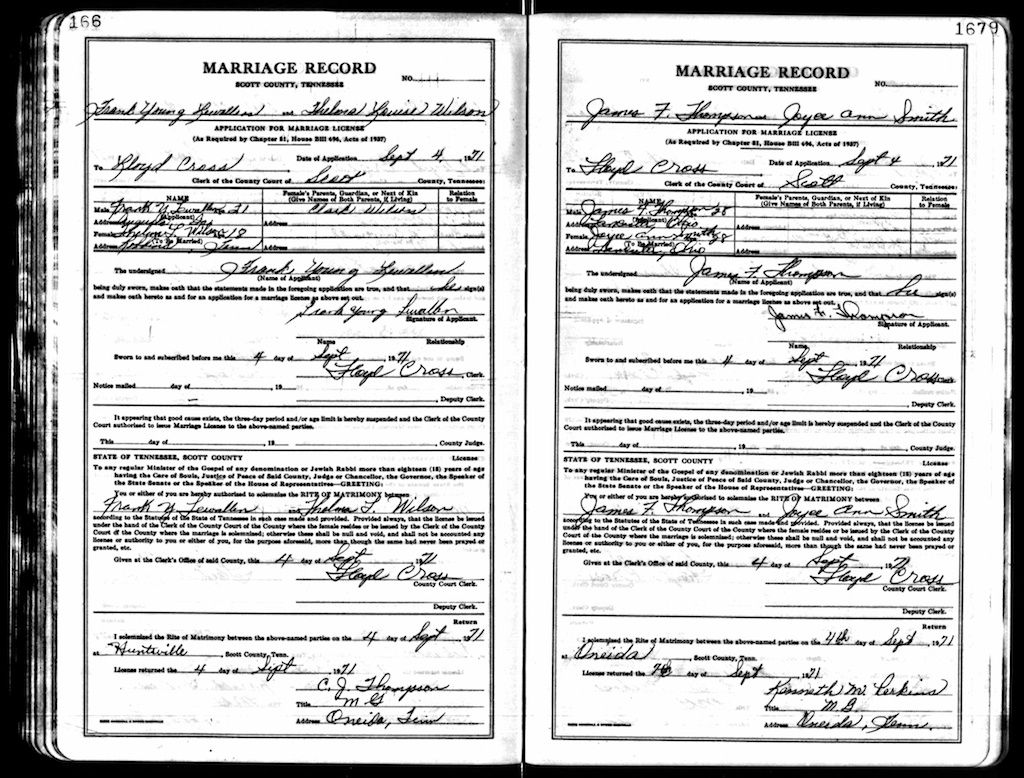 166
MARRIAGE RECORD
NO.
SCOTT COUNTY, TENNESSEE
Frank Young Lewallen and Thelma Louise Wilson
APPLICATION FOR MARRIAGE LICENSE
(As Required by Chapter 81, House Bill 696, Acts of 1937)
Date of Application Sept 4, 1971
To Floyd Cross
Clerk of the County Court of Scott County, Tennessee:
NAME Female's Parents, Guardian, or Next of Kin Relation
(Give Names of Both Parents, if Living) to Female
Male Frank Y. Lewallen 21 Clark Wilson
(Applicant)
Address Address
Female Thelma L. Wilson 18
(To Be Married)
Address Robbins Tenn Address
The undersigned Frank Young Lewallen
(Name of Applicant)
being duly sworn, makes oath that the statements made in the foregoing application are true, and that he sign(s)
and makes oath hereto as and for an application for a marriage license as above set out.
Frank Young Lewallen
Signature of Applicant.
Name Relationship
Sworn to and subscribed before me this 4 day of Sept, 1971
Floyd Cross, Clerk.
Notice mailed day of , 19
, Deputy Clerk.
It appearing that good cause exists, the three-day period and/or age limit is hereby suspended and the Clerk of the County
Court authorised to issue Marriage License to the above-named parties.
This day of , 19 , County Judge.
STATE OF TENNESSEE, SCOTT COUNTY License
To any regular Minister of the Gospel of any denomination or Jewish Rabbi more than eighteen (18) years of age
having the Care of Souls, Justice of Peace of Said County, Judge or Chancellor, the Governor, the Speaker of
the State Senate or the Speaker of the House of Representatives—GREETING:
You or either of you are hereby authorised to solemnize the RITE OF MATRIMONY between
Frank Y. Lewallen and Thelma L. Wilson
according to the Statutes of the State of Tennessee in such case made and provided. Provided always, that the license be issued
under the hand of the Clerk of the County Court of the County where the female resides or be issued by the Clerk of the County
Court of the County where the marriage is solemnized; otherwise these shall be null and void, and shall not be accounted any
license or authority to you or either of you, for the purpose aforesaid, more than though the same had never been prayed or
granted, etc.
Given at the Clerk's Office of said County, this 4 day of Sept 1971
Floyd Cross
County Court Clerk.
Deputy Clerk.
Return
I solemnized the Rite of Matrimony between the above-named parties on the 4 day of Sept, 1971
at Huntsville, Scott County, Tenn.
License returned the 4 day of Sept 1971
C. J. Thompson
Title M G
Address Oneida, Tenn
1679
MARRIAGE RECORD
NO.
SCOTT COUNTY, TENNESSEE
James F. Thompson and Joyce Ann Smith
APPLICATION FOR MARRIAGE LICENSE
(As Required by Chapter 81, House Bill 696, Acts of 1937)
Date of Application Sept 4 1971
To Floyd Cross
Clerk of the County Court of Scott County, Tennessee:
NAME Female's Parents, Guardian, or Next of Kin Relation
(Give Names of Both Parents, if Living) to Female
Male James F. Thompson 28
(Applicant)
Address Ohio Address
Female Joyce Ann Smith 28
(To Be Married)
Address Ohio Address
The undersigned James F. Thompson
(Name of Applicant)
being duly sworn, makes oath that the statements made in the foregoing application are true, and that he sign(s)
and makes oath hereto as and for an application for a marriage license as above set out.
James F. Thompson
Signature of Applicant.
Name Relationship
Sworn to and subscribed before me this 4 day of Sept, 1971
Floyd Cross Clerk
Notice mailed day of , 19
, Deputy Clerk.
It appearing that good cause exists, the three-day period and/or age limit is hereby suspended and the Clerk of the County
Court authorised to issue Marriage License to the above-named parties.
This day of , 19 , County Judge.
STATE OF TENNESSEE, SCOTT COUNTY License
To any regular Minister of the Gospel of any denomination or Jewish Rabbi more than eighteen (18) years of age
having the Care of Souls, Justice of Peace of Said County, Judge or Chancellor, the Governor, the Speaker of
the State Senate or the Speaker of the House of Representatives—GREETING:
You or either of you are hereby authorised to solemnize the RITE OF MATRIMONY between
James F. Thompson and Joyce Ann Smith
according to the Statutes of the State of Tennessee in such case made and provided. Provided always, that the license be issued
under the hand of the Clerk of the County Court of the County where the female resides or be issued by the Clerk of the County
Court of the County where the marriage is solemnized; otherwise these shall be null and void, and shall not be accounted any
license or authority to you or either of you, for the purpose aforesaid, more than though the same had never been prayed or
granted, etc.
Given at the Clerk's Office of said County, this 4 day of Sept 1971
Floyd Cross
County Court Clerk.
Deputy Clerk.
Return
I solemnized the Rite of Matrimony between the above-named parties on the 4th day of Sept, 1971
at Oneida, Scott County, Tenn.
License returned the day of Sept 1971
Kenneth M. Perkins
Title M.G.
Address Oneida, Tenn.